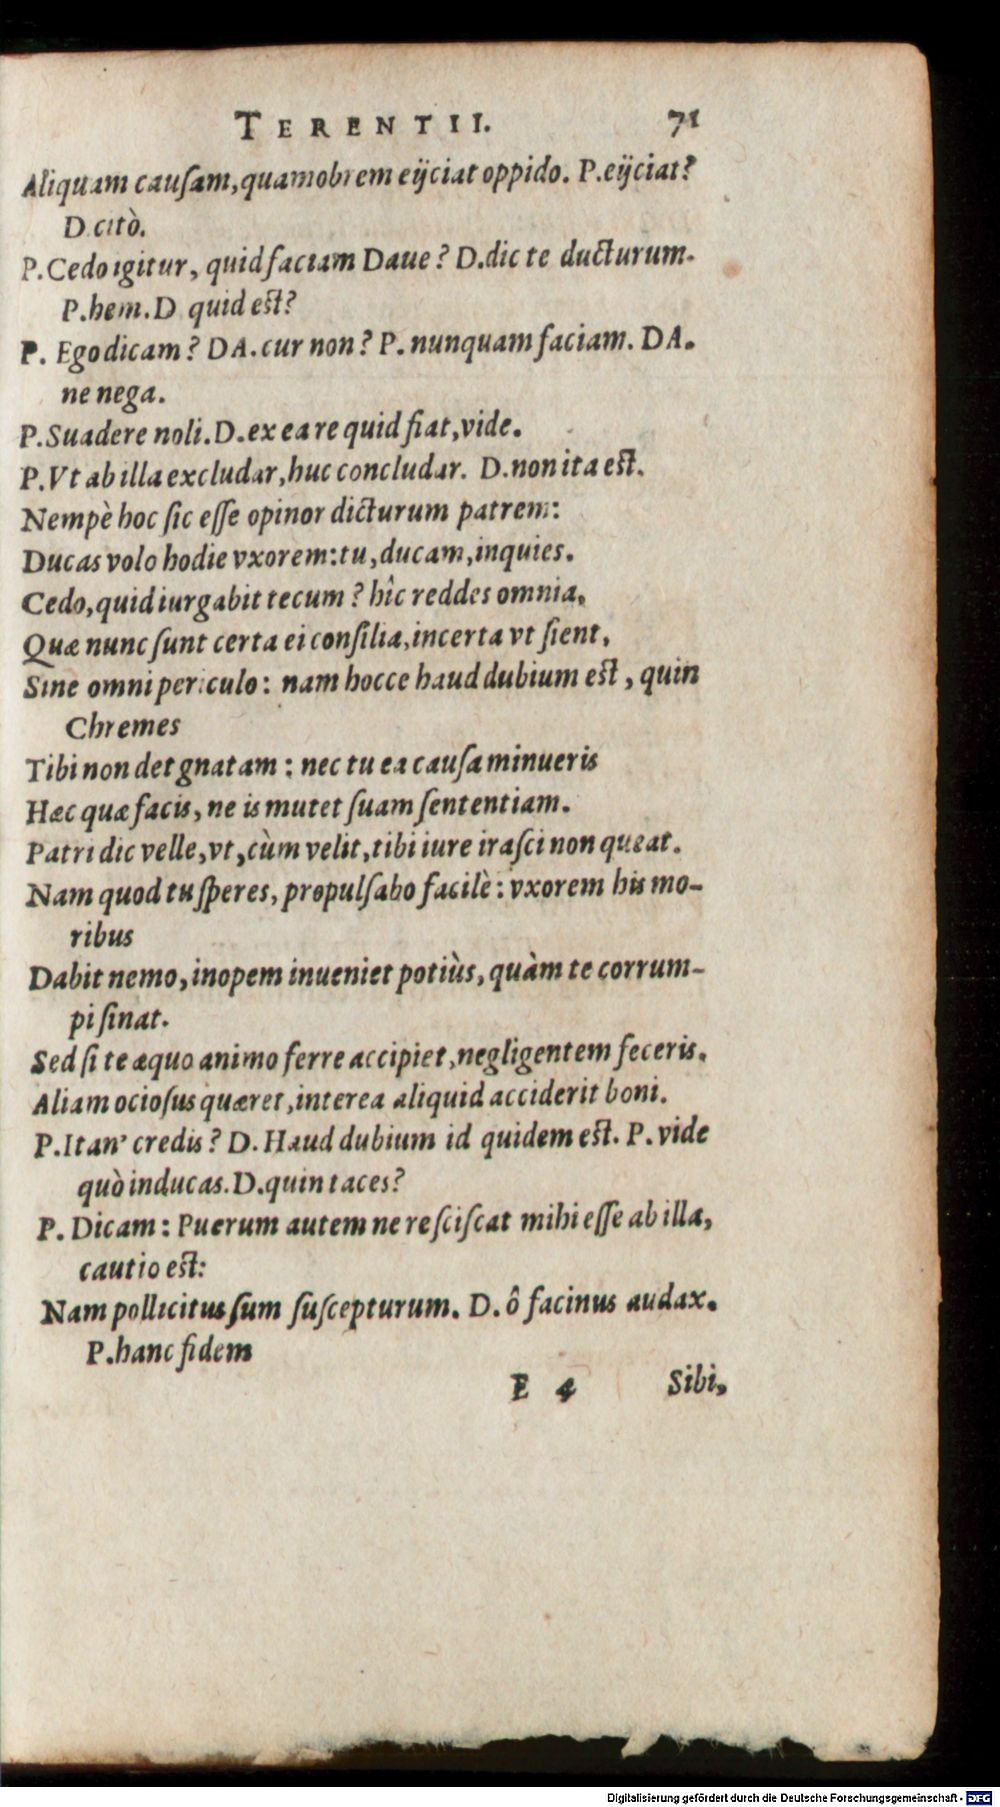 TERENTII. 71
Aliquam cauſam, quamobrem eijciat oppido. P. eijciat?
D. citò.
P. Cedo igitur, quid faciam Daue? D. dic te ducturum.
P. hem. D quid est?
P. Ego dicam? DA. cur non? P. nunquam faciam. DA.
ne nega.
P. Suadere noli. D. ex ea re quid fiat, vide.
P. Vt ab illa excludar, huc concludar. D. non ita est.
Nempè hoc ſic eſſe opinor dicturum patrem:
Ducas volo hodie vxorem: tu, ducam, inquies.
Cedo, quid iurgabit tecum? hîc reddes omnia,
Quæ nunc ſunt certa ei conſilia, incerta vt ſient,
Sine omni periculo: nam hocce haud dubium est, quin
Chremes
Tibi non det gnatam: nec tu ea cauſa minueris
Hæc quæ facis, ne is mutet ſuam ſententiam.
Patri dic velle, vt, cùm velit, tibi iure iraſci non queat.
Nam quod tu ſperes, propulſabo facilè: vxorem his mo-
ribus
Dabit nemo, inopem inueniet potiùs, quàm te corrum-
pi ſinat.
Sed ſi te æquo animo ferre accipiet, negligentem feceris.
Aliam ocioſus quæret, interea aliquid acciderit boni.
P. Itan' credis? D. Haud dubium id quidem est. P. vide
quò inducas. D. quin taces?
P. Dicam: Puerum autem ne reſciſcat mihi eſſe ab illa,
cautio est:
Nam pollicitus ſum ſuſcepturum. D. ô facinus audax.
P. hanc fidem
E 4 Sibi,
Digitalisierung gefördert durch die Deutsche Forschungsgemeinschaft - DFG